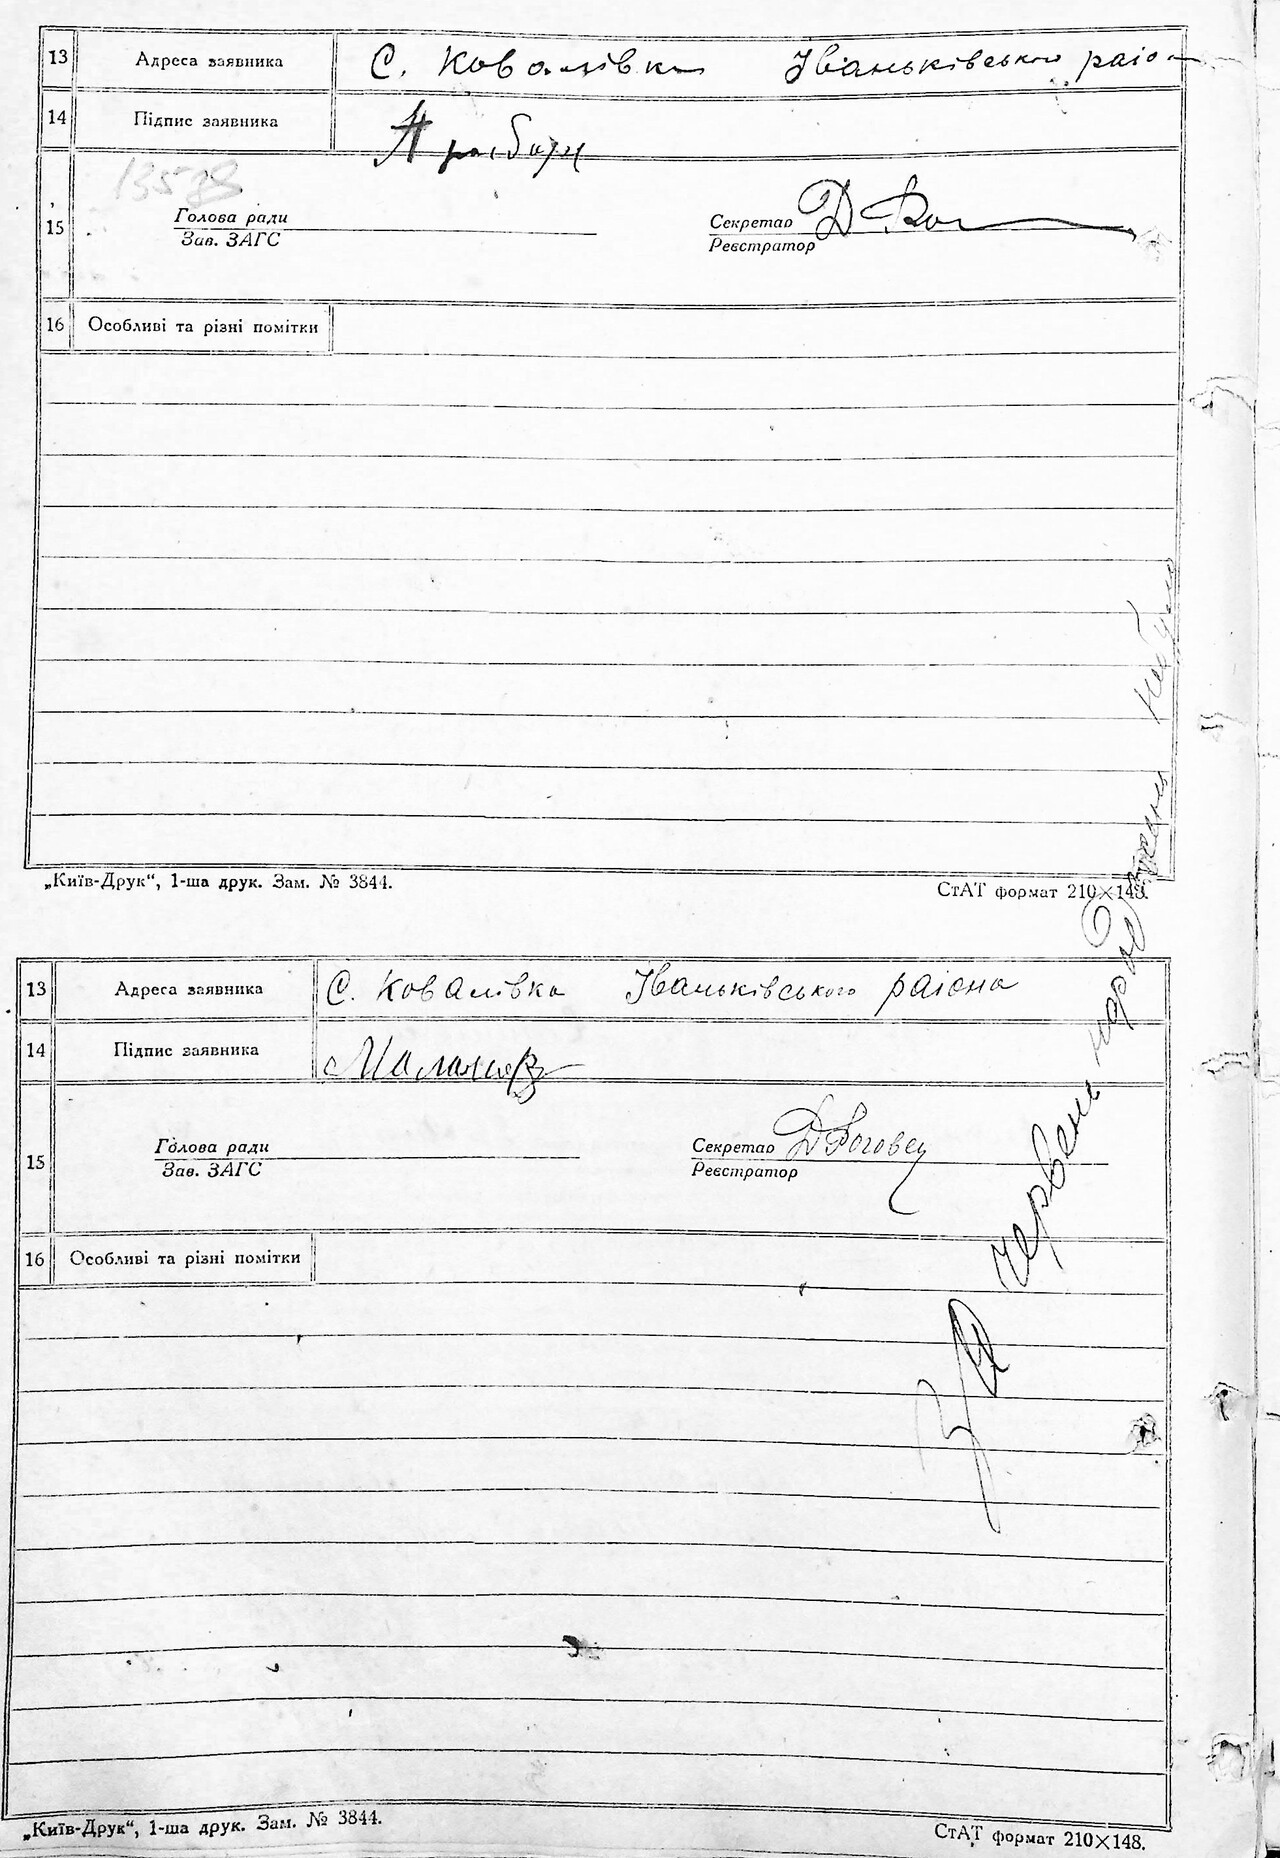 13 Адреса заявника С. Ковалівка Іваньківського раіон
14 Підпис заявника
13578
15 Голова ради Секретар Д Ро
Зав. ЗАГС Реєстратор
16 Особливі та різні помітки
„Київ-Друк“, 1-ша друк. Зам. № 3844. СтАТ формат 210×148.
13 Адреса заявника С. Ковалівка Іваньківського раіона
14 Підпис заявника
15 Голова ради Секретар Д Роговец
Зав. ЗАГС Реєстратор
16 Особливі та різні помітки
За червень народжень небуло
„Київ-Друк“, 1-ша друк. Зам. № 3844. СтАТ формат 210×148.